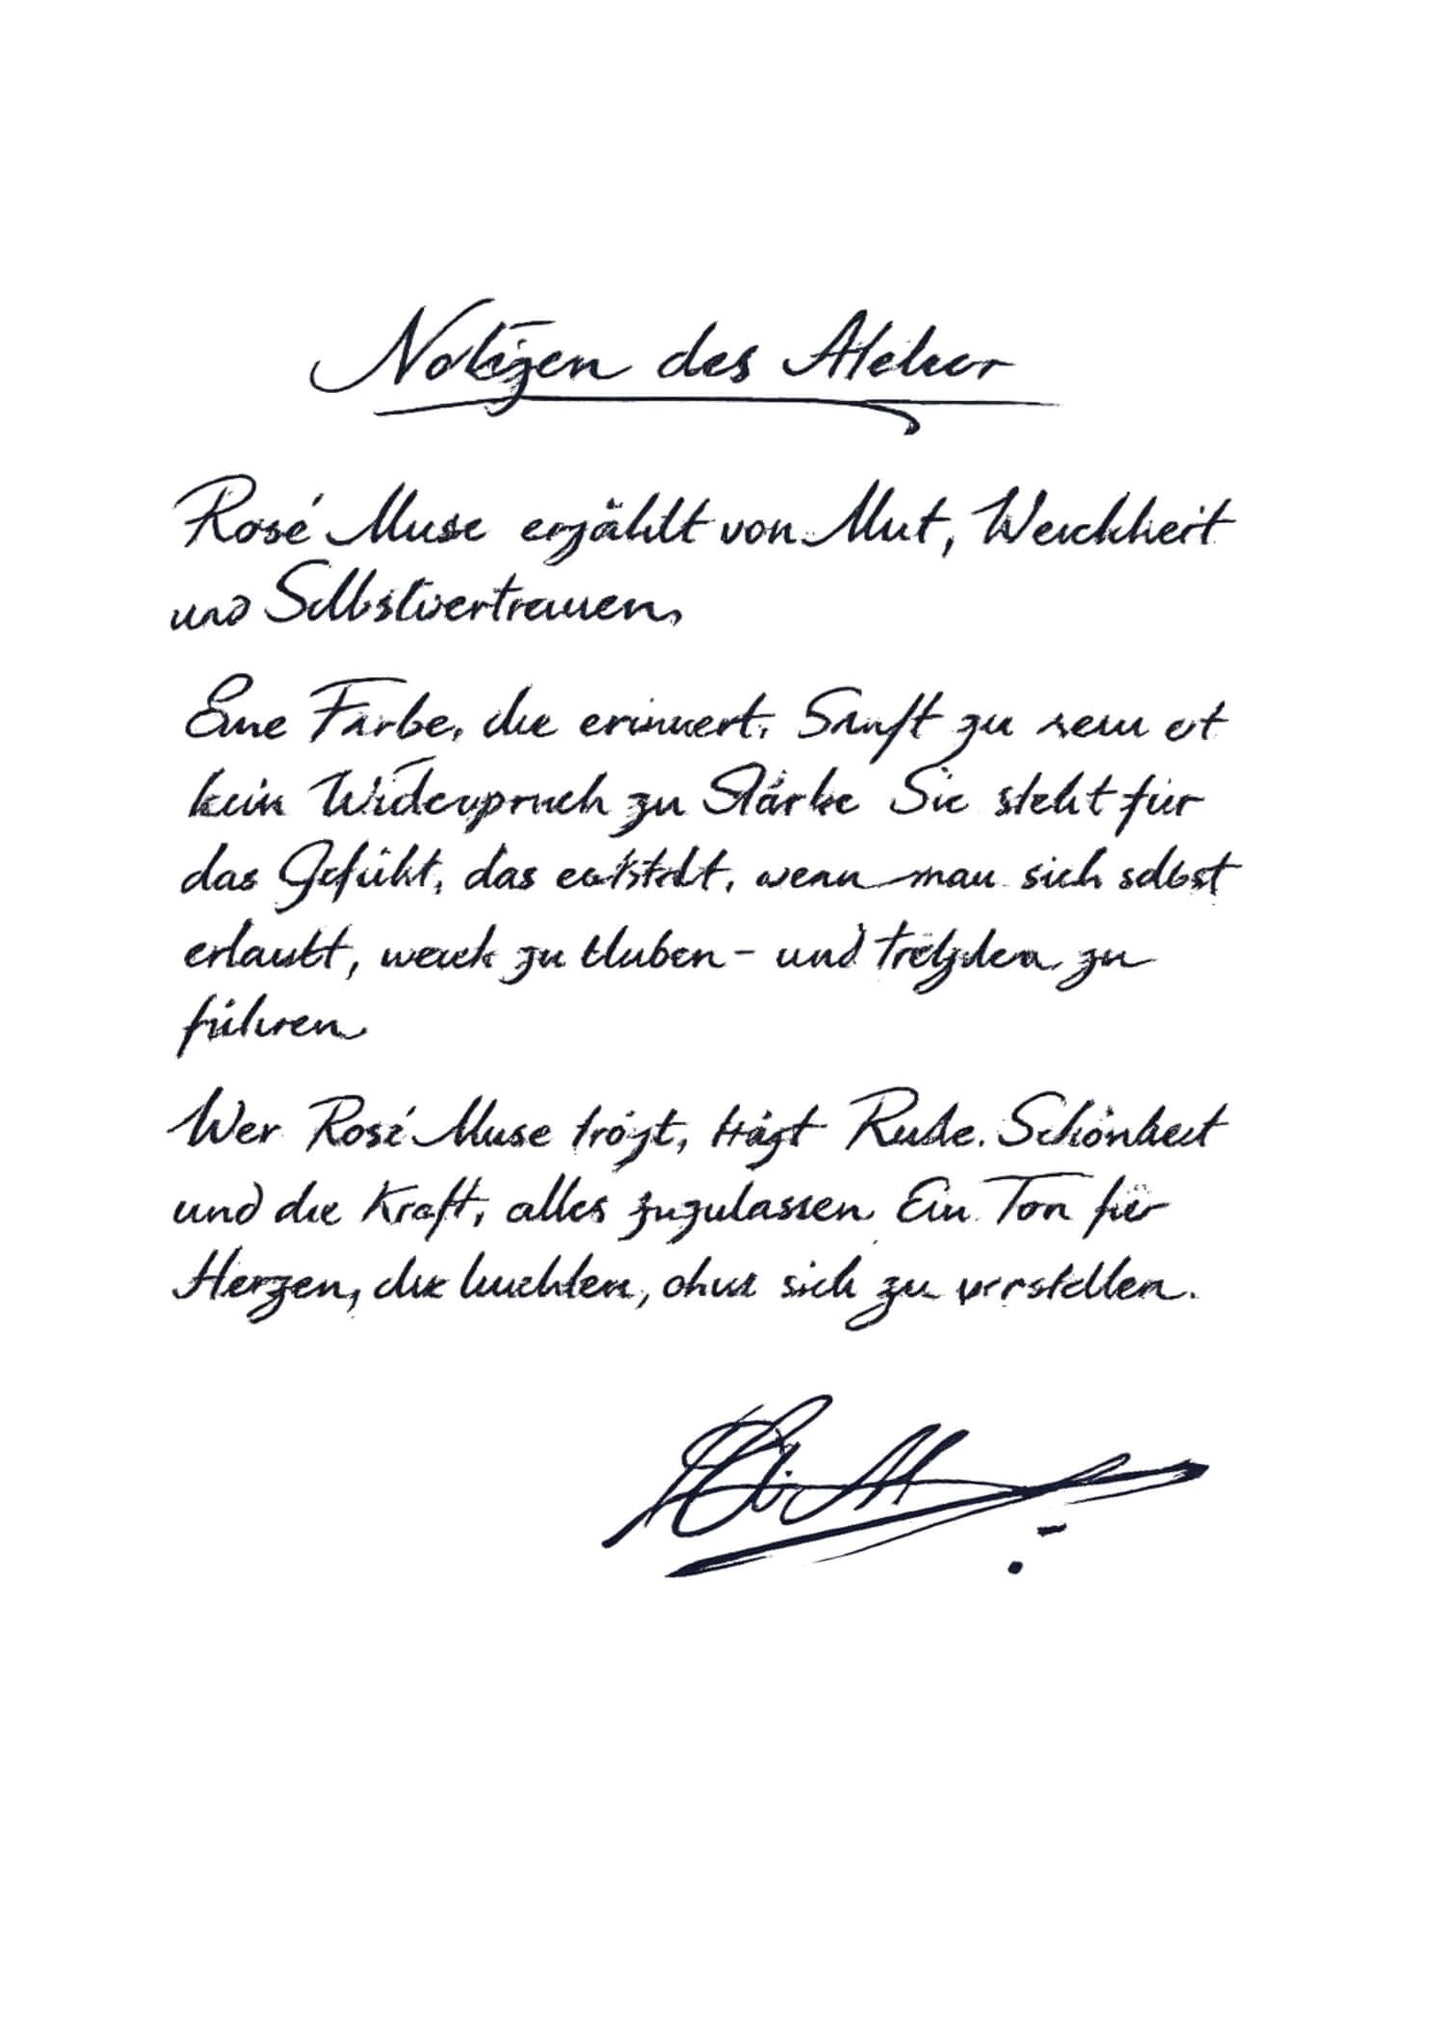 Notizen des Atelier
Rosé Muse erzählt von Mut, Weichheit
und Selbstvertrauen.
Eine Farbe, die erinnert. Sanft zu sein ist
kein Widerspruch zu Stärke Sie steht für
das Gefühl, das entsteht, wenn man sich selbst
erlaubt, weich zu bleiben - und trotzdem zu
führen.
Wer Rosé Muse trägt, trägt Ruhe. Schönheit
und die Kraft, alles zuzulassen Ein Ton für
Herzen, die leuchten, ohne sich zu verstellen.